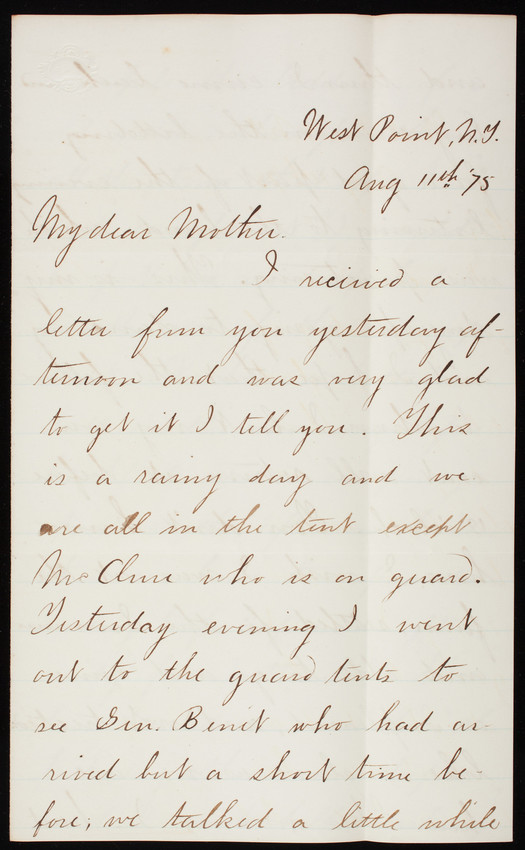 West Point, N.Y.
Aug 11th '75
My dear Mother.
I recieved a
letter from you yesterday af-
ternoon and was very glad
to get it I tell you. This
is a rainy day and we
are all in the tent except
McClure who is on guard.
Yesterday evening I went
out to the guard tents to
see Gen. Benét who had ar-
rived but a short time be-
fore; we talked a little while